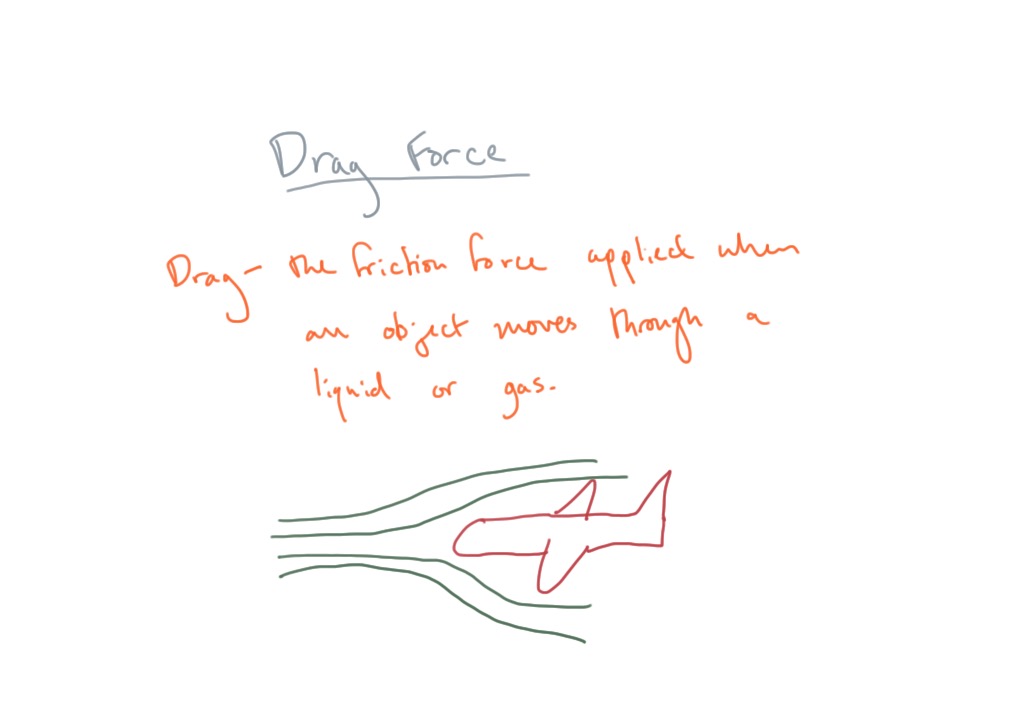 Drag Force
Drag- the friction force applied when
an object moves through a
liquid or gas.